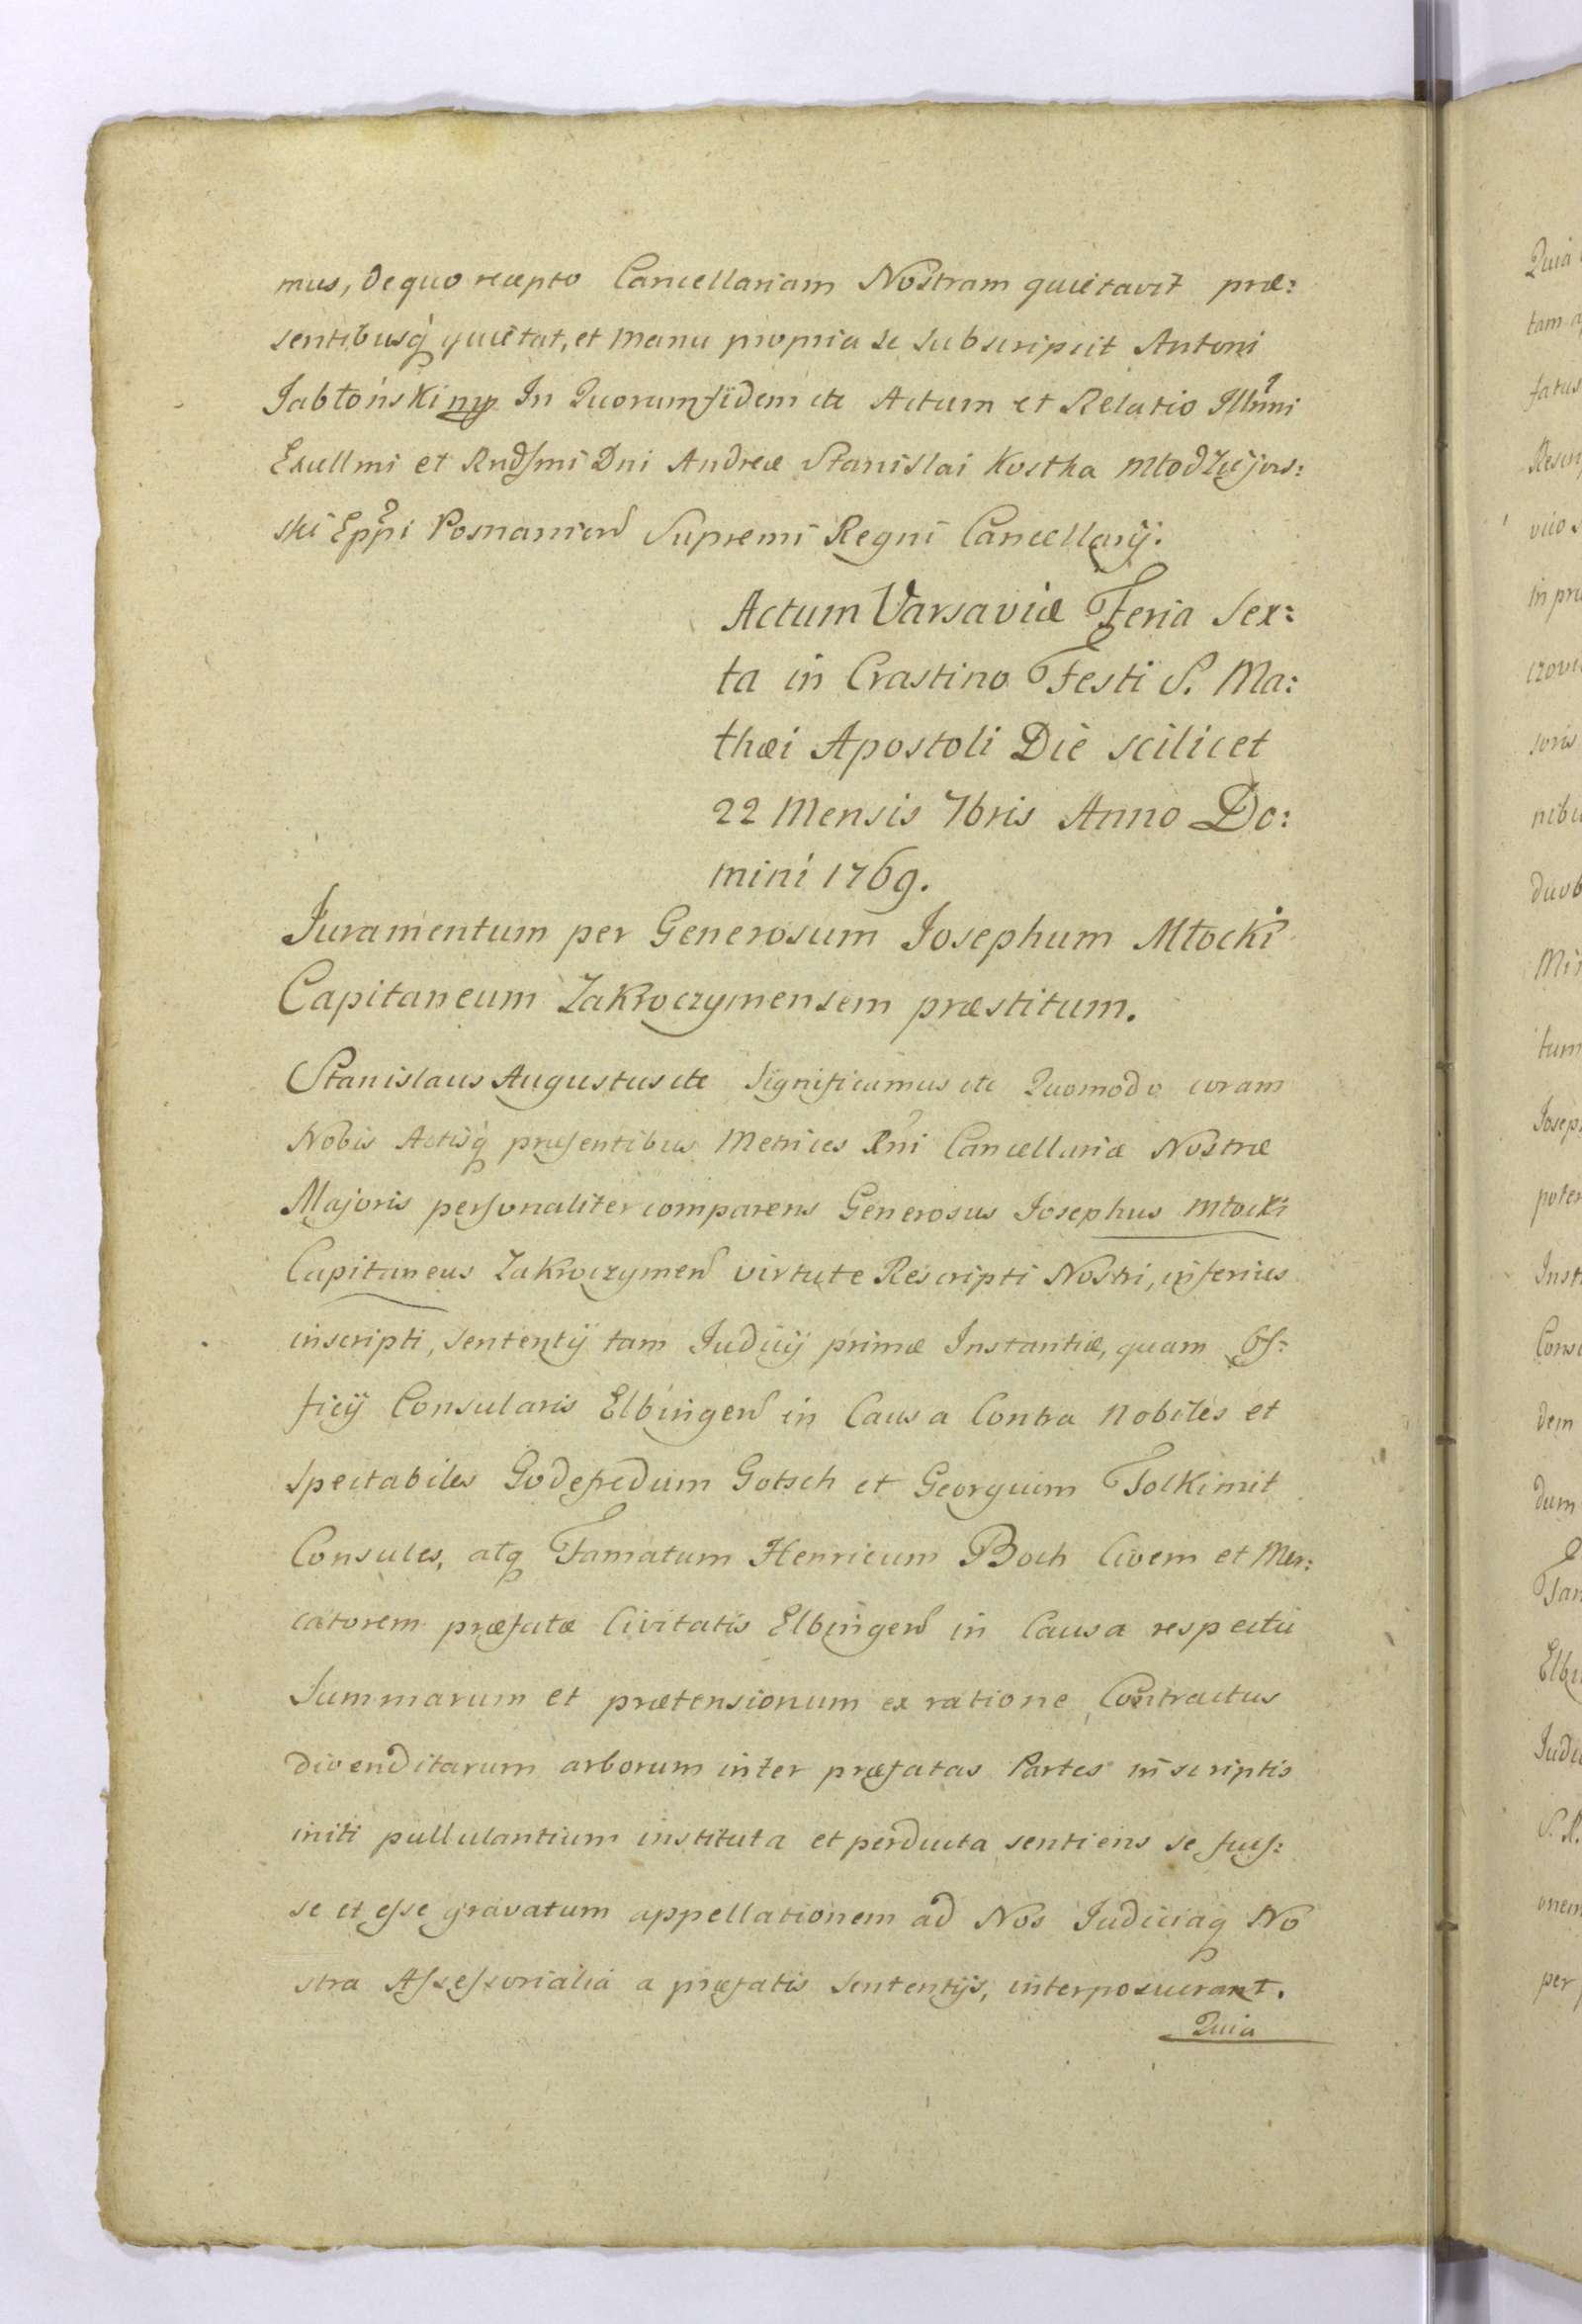 mus, de quo recepto Cancellariam Nostram quietavit præ:
sentibusq́ quietat, et manu propria se subscripsit Antoni
Jabłoński mp In Quorum fidem etc Actum et Relatio Illmi
Excellmi et Rndſmi Dni Andreæ Stanislai Kostka Młodziejow:
ski Eppi Posnanien Supremi Regni Cancellarij.
Actum Varsaviæ Feria Sex:
ta in Crastino Festi S. Ma:
thæi Apostoli Die scilicet
22 Mensis 7bris Anno Do:
mini 1769.
Juramentum per Generosum Josephum Młocki
Capitaneum Zakroczymensem præstitum.
Stanislaus Augustus etc Significamus etc Quomodo coram
Nobis Actisq́ præsentibus Metrices Rni Cancellariæ Nostræ
Majoris perſonaliter comparens Generosus Josephus Młocki
Capitaneus Zakroczymen virtute Rescripti Nostri, inferius
inscripti, Sententij tam Judicij primæ Instantiæ, quam Of:
ficij Consularis Elbingen in Causa Contra Nobiles et
Spectabiles Godefredum Gotsch et Georgium Tolkimit
Consules, atq Famatum Henricum Boch Civem et Mer:
catorem præfatæ Civitatis Elbingen in Causa respectu
Summarum et prætensionum ex ratione Contractus
divenditarum arborum inter præfatas Partes in scriptis
initi pullulantium instituta et perducta sentiens se fuiſ:
se et eſse gravatum appellationem ad Nos Judiciaq No
stra Aſseſsorialia a præfatis Sententijs, interposuerant.
Quia
Quia
tam a
fatus
vico s
in pra
soris
nibu
duob
Min
tum
Joseph
poten
Inst
Cons
dem
dum
Fam
Elbin
Judi
S. R.
onem
per p